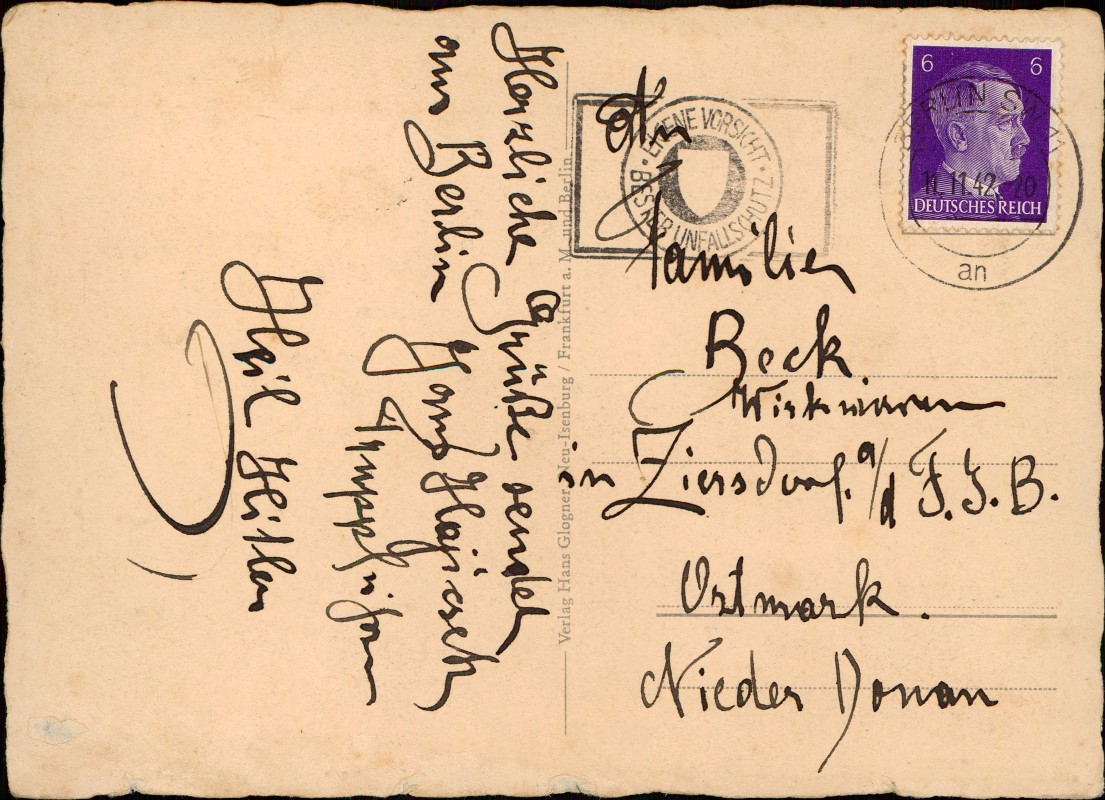 Herzliche Grüße sendet
aus Berlin Hans
Heil Hitler
Verlag Hans Glogner, Neu-Isenburg / Frankfurt a. M. und Berlin
EIGENE VORSICHT · BESTER UNFALLSCHUTZ ·
6 6
DEUTSCHES REICH
BERLIN SW
11.11.42.-20
an
An
Familie
Beck
Wirkwaren
in Ziersdorf. a/d F. J. B.
Ostmark.
Nieder Donau